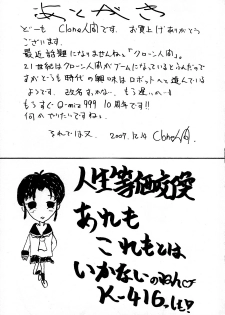 あとがき
どーも Clone人間です。お買上げありがとう
ございます。
最近話題になりませんね「クローン人間」。
21世紀はクローン人間がブームになっているとふんだって
ですがどうも時代の興味はロボットへと進んでいる
ようです。改名すっかな、もう遅いか…
もうすぐQ-miz 999 10周年です!!
何かやりたいですね。
それでは又 2009.12.14 Clone人間.
人生等価交換
あれも
これもとは
いかないのねん
K-416